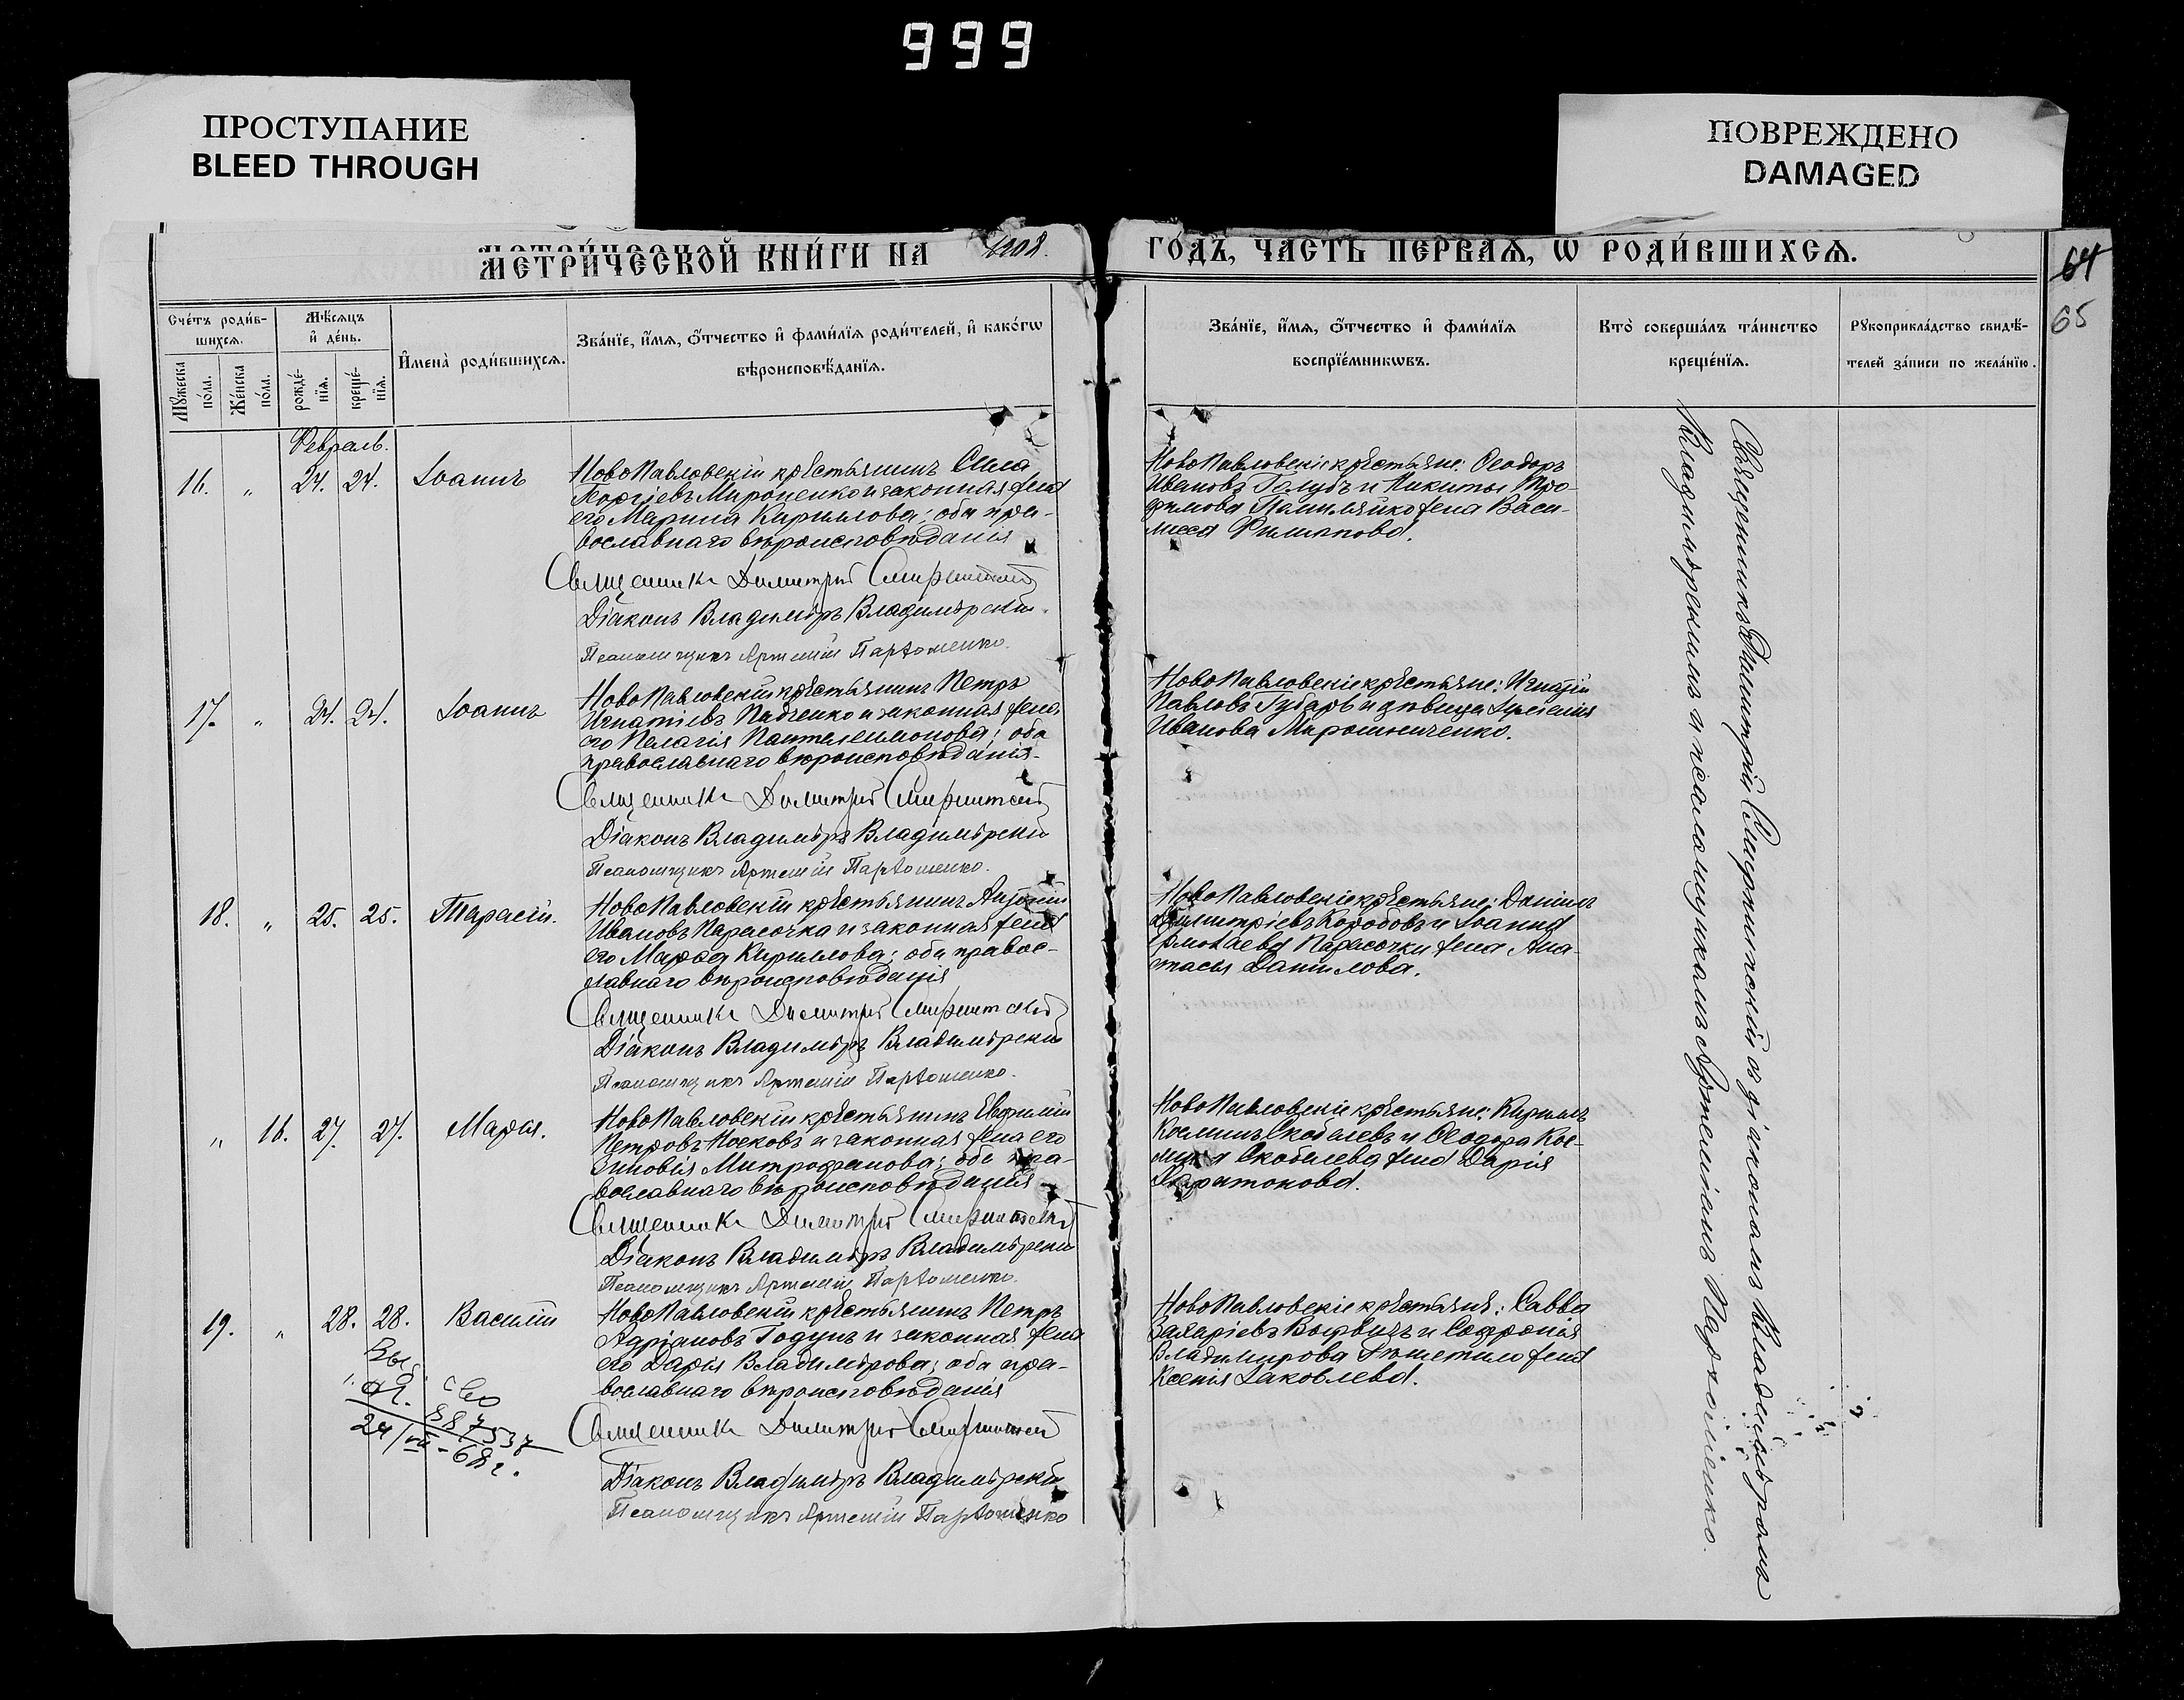 999
ПРОСТУПАНИЕ
BLEED THROUGH
ПОВРЕЖДЕНО
DAMAGED
МЕТРИ́ЧЕСКОЙ КНИ́ГИ НА 1908. ГО́ДЪ, ЧАСТЬ ПЕРВАЯ, Ѡ РОДИ́ВШИХСЯ.
64
65
Сче́тъ роди́в-
шихся.
Му́жеска по́ла.
Же́нска по́ла.
Мѣ́сяцъ
и҆ де́нь.
рожде́-
нїя.
креще́-
нїя.
И҆мена̀ роди́вшихся.
Зва́нїе, и҆́мя, ѻ҆́тчество и҆ фами́лїя роди́телей, и҆ како́гѡ
вѣроисповѣ́данїя.
Зва́нїе, и҆́мя, ѻ҆́тчество и҆ фами́лїя
воспрїе́мникѡвъ.
Кто̀ соверша́лъ та́инство
креще́нїя.
Рꙋкоприкла́дство свидѣ́-
телей за́писи по жела́нїю.
Февраль.
16. " 24. 24. Іоаннъ
НовоПавловскій крестьянинъ Сила
Георгіевъ Мироненко и законная жена
его Марина Кириллова; оба пра-
вославнаго вѣроисповѣданія
Священникъ Димитрій Смирнитскій
Діаконъ Владиміръ Владимірскій.
Псаломщикъ Артемій Пархоменко.
НовоПавловскіе крестьяне: Ѳеодоръ
Ивановъ Голубъ и Никиты Тро-
фимова жена Васи-
лисса Филиппова.
17. " 24. 24. Іоаннъ
НовоПавловскій крестьянинъ Петръ
Игнатіевъ Падченко и законная жена
его Пелагія Пантелеимонова; оба
православнаго вѣроисповѣданія.
Священникъ Димитрій Смирнитскій
Діаконъ Владиміръ Владимірскій
Псаломщикъ Артемій Пархоменко.
НовоПавловскіе крестьяне: Игнатій
Павловъ Губарь и дѣвица
Иванова Мирошниченко.
18. " 25. 25. Тарасій.
НовоПавловскій крестьянинъ Антоній
Ивановъ Парасочка и законная жена
его Марфа Кириллова; оба правос-
лавнаго вѣроисповѣданія
Священникъ Димитрій Смирнитскій
Діаконъ Владиміръ Владимірскій
Псаломщикъ Артемій Пархоменко.
НовоПавловскіе крестьяне: Даніилъ
Димитріевъ Коробовъ и Іоанна
Ермолаева Парасочки жена Ана-
стасія Данилова.
" 16. 27. 27. Марѳа.
НовоПавловскій крестьянинъ Евфимій
Петровъ Носковъ и законная жена его
Зиновія Митрофанова; оба пра-
вославнаго вѣроисповѣданія
Священникъ Димитрій Смирнитскій
Діаконъ Владиміръ Владимірскій
Псаломщикъ Артемій Пархоменко.
НовоПавловскіе крестьяне: Кириллъ
Косминъ Скобелевъ и Ѳеодора Кос-
мина Скобелева жена Дарія
Харитонова.
19. " 28. 28. Василій
НовоПавловскій крестьянинъ Петръ
Адріановъ Годунъ и законная жена
его Дарія Владимірова; оба пра-
вославнаго вѣроисповѣданія
Священникъ Димитрій Смирнитскій
Діаконъ Владиміръ Владимірскій
Псаломщикъ Артемій Пархоменко
НовоПавловскіе крестьяне: Савва
Захаріевъ и Софронія
Владимирова жена
Ксенія Іаковлева.
887537
24/VII-68г.
Священникъ Димитрій Смирнитскій съ діакономъ Владиміромъ
Владимірскимъ и псаломщикомъ Артеміемъ Пархоменко.